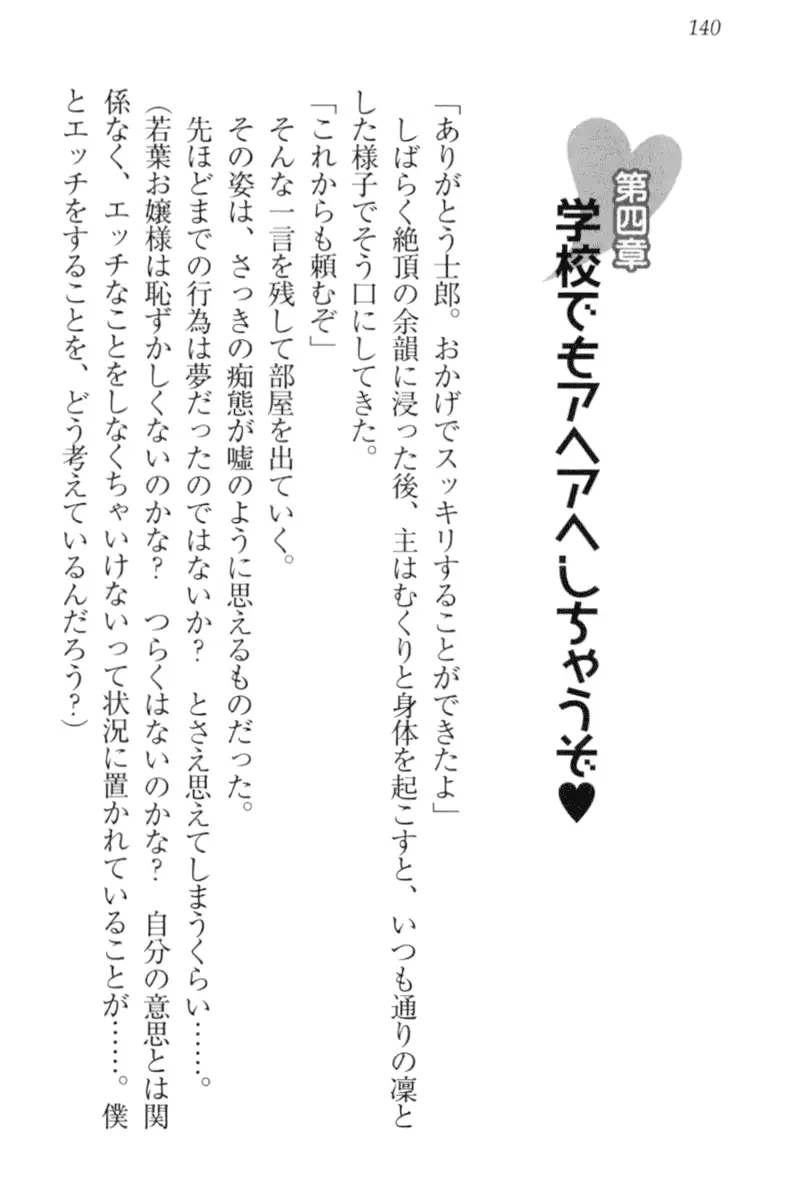 140
第四章
学校でもアヘアヘしちゃうぞ♥
「ありがとう士郎。おかげでスッキリすることができたよ」
しばらく絶頂の余韻に浸った後、主はむくりと身体を起こすと、いつも通りの凛と
した様子でそう口にしてきた。
「これからも頼むぞ」
そんな一言を残して部屋を出ていく。
その姿は、さっきの痴態が嘘のように思えるものだった。
先ほどまでの行為は夢だったのではないか?　とさえ思えてしまうくらい……。
(若葉お嬢様は恥ずかしくないのかな?　つらくはないのかな?　自分の意思とは関
係なく、エッチなことをしなくちゃいけないって状況に置かれていることが……。僕
とエッチをすることを、どう考えているんだろう?)